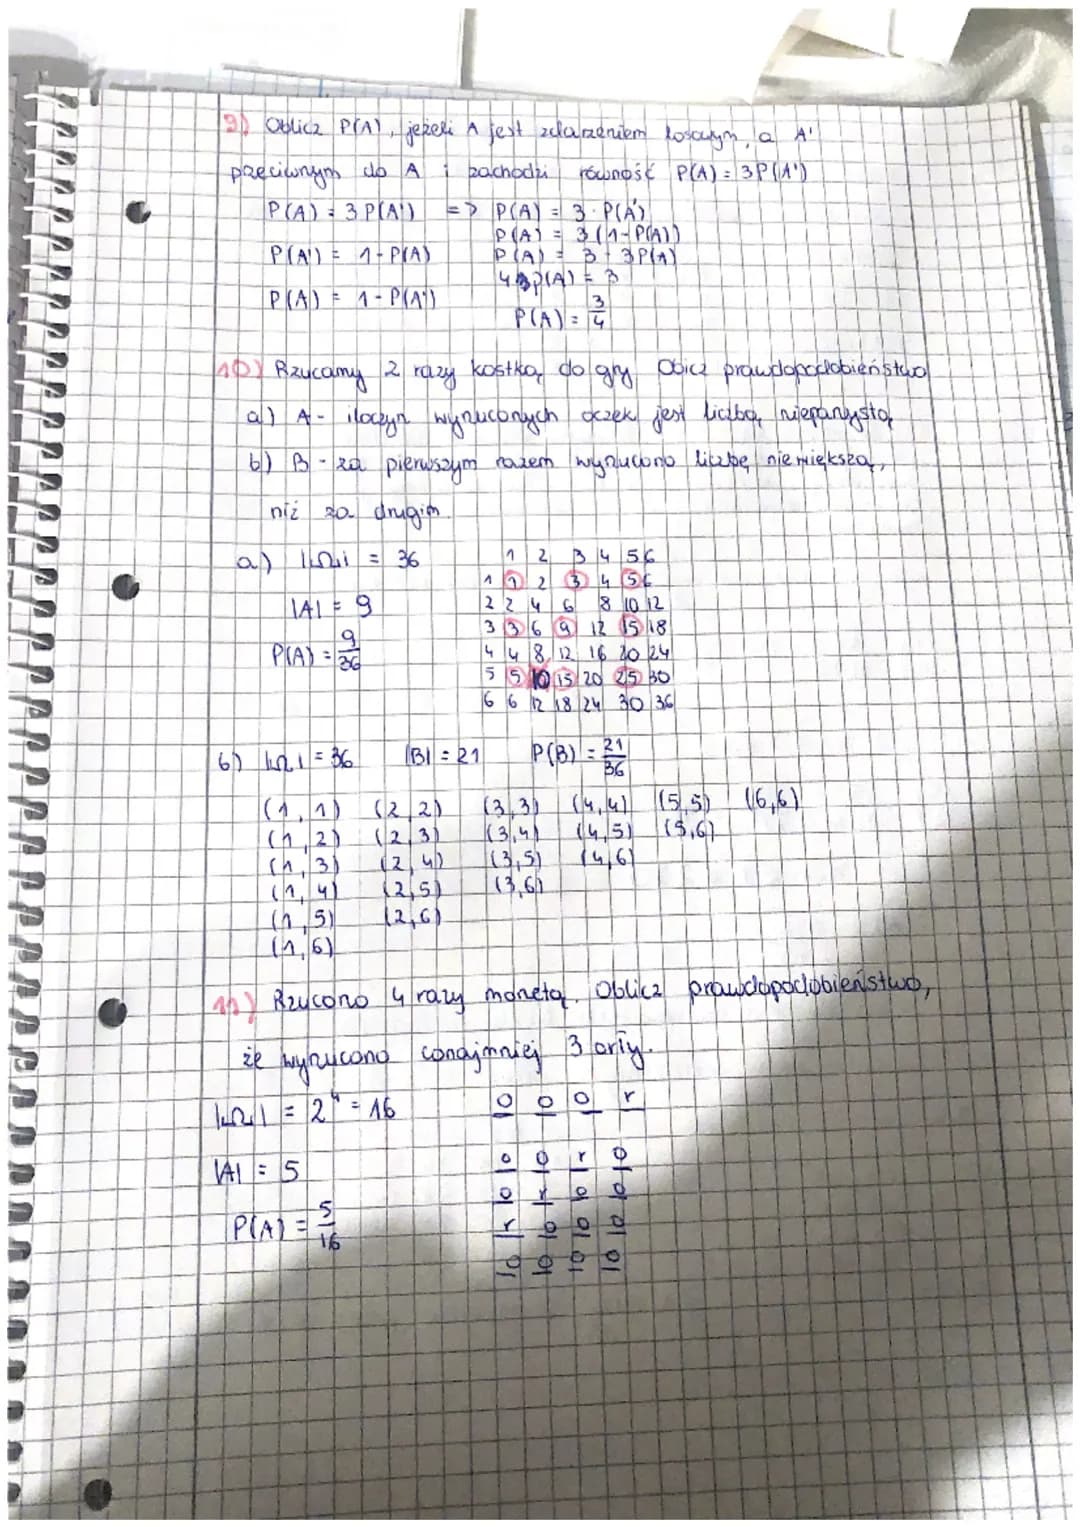 9) Oblicz P(A), jeżeli A jest zdarzeniem losowym, a A'
przeciwnym do A i zachodzi równość P(A) = 3P(A')
P(A) = 3P(A') => P(A) = 3 · P(A')
P(A) = 3(1-P(A))
P(A') = 1-P(A) P(A) = 3 - 3P(A)
4 P(A) = 3
P(A) = 1-P(A')
P(A) = 3/4
10) Rzucamy 2 razy kostką do gry Obicz prawdopodobieństwo
a) A - iloczyn wyrzuconych oczek jest liczbą nieparzystą
b) B - za pierwszym razem wyrzucono liczbę niewiększą,
niż za drugim.
a) |Ω| = 36 1 2 3 4 5 6
1 1 2 3 4 5 6
|A| = 9 2 2 4 6 8 10 12
3 3 6 9 12 15 18
P(A) = 9/36 4 4 8 12 16 20 24
5 5 10 15 20 25 30
6 6 12 18 24 30 36
b) |Ω| = 36 |B| = 21 P(B) = 21/36
(1,1) (2,2) (3,3) (4,4) (5,5) (6,6)
(1,2) (2,3) (3,4) (4,5) (5,6)
(1,3) (2,4) (3,5) (4,6)
(1,4) (2,5) (3,6)
(1,5) (2,6)
(1,6)
11) Rzucono 4 razy monetą. Oblicz prawdopodobieństwo,
że wyrzucono conajmniej 3 orły.
|Ω| = 2⁴ = 16 o o o r
|A| = 5 o o r o
o r o o
P(A) = 5/16 r o o o
o o o o